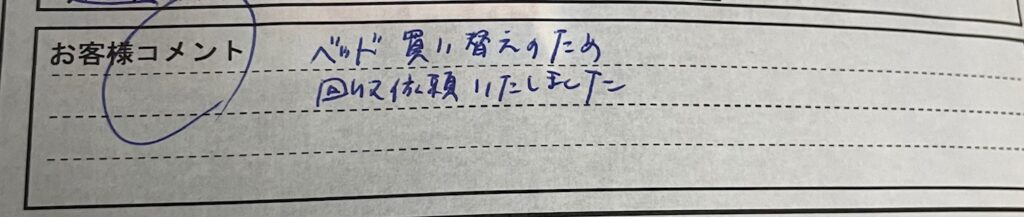 お客様コメント
ベッド買い替えのため
回収依頼いたしました